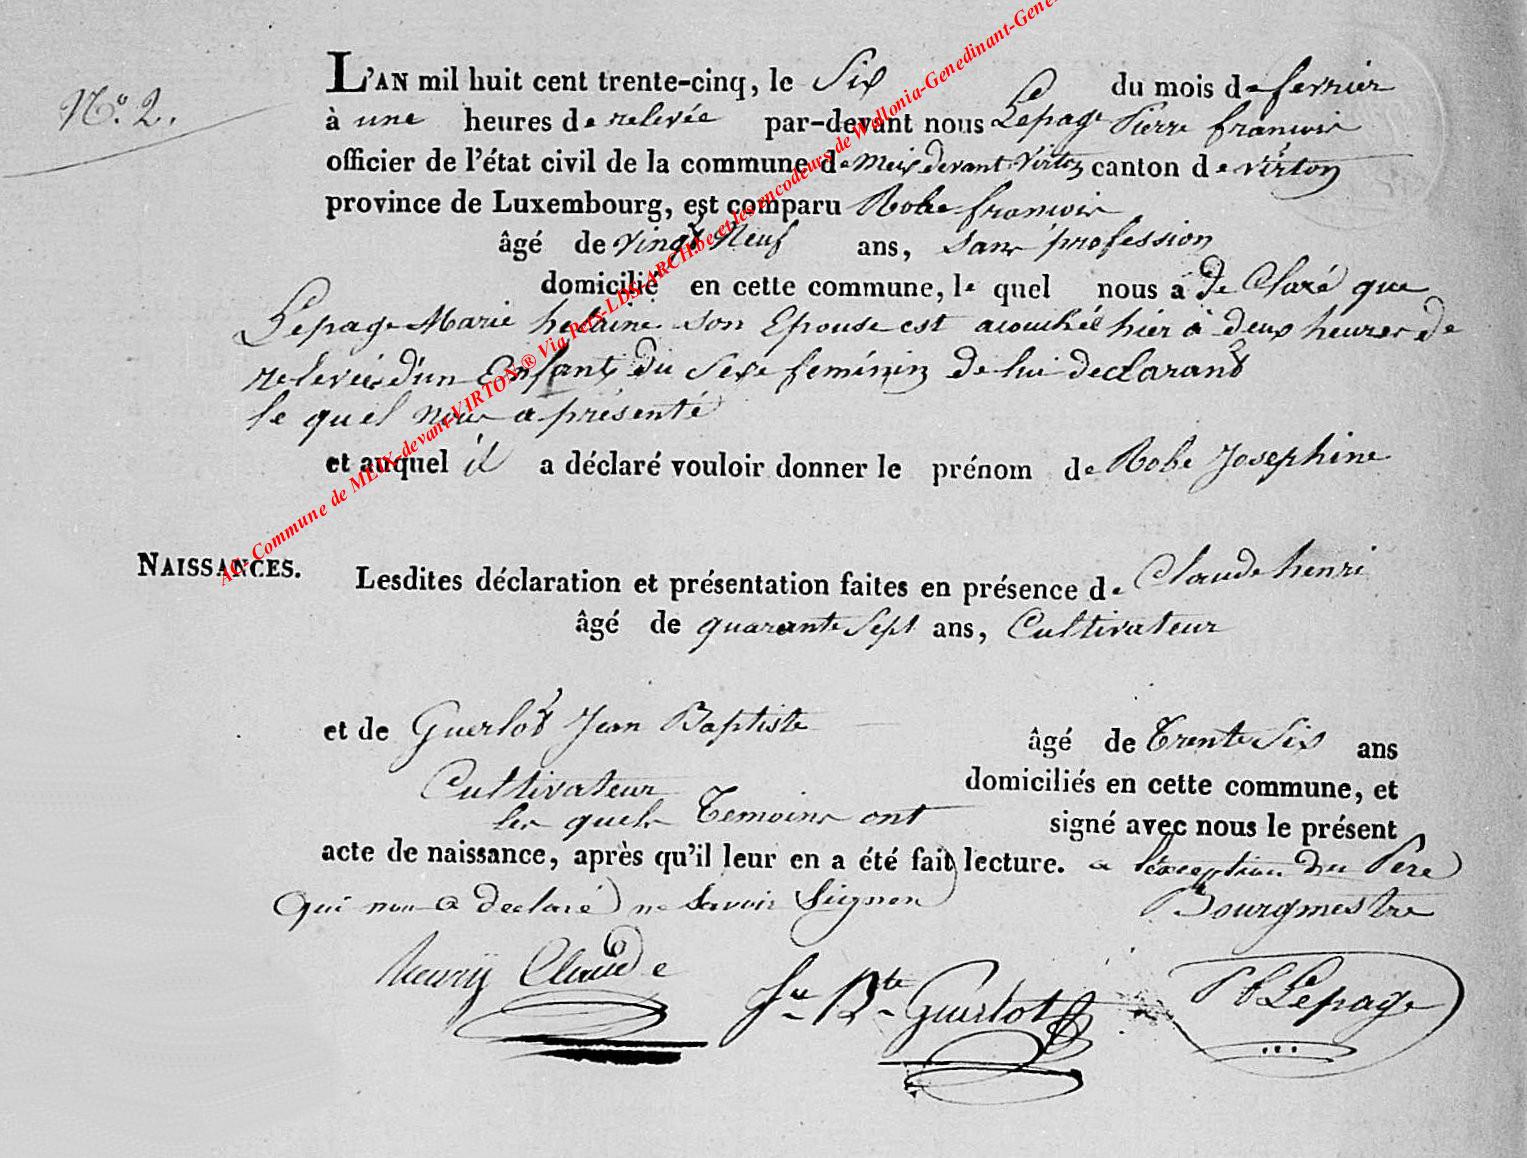 N.o 2.
L'AN mil huit cent trente-cinq, le Six du mois de fevrier
à une heures de relevée par-devant nous Lepage Pierre francois
officier de l'état civil de la commune de Meix devant Virton canton de virton
province de Luxembourg, est comparu Robe francois
âgé de vingt Neuf ans, sans profession
domicilié en cette commune, le quel nous a de Claré que
Lepage Marie helaine son Epouse est acouchée hier à deux heures de
relevée d'un Enfant du Sexe feminin de lui declarant
le quel nous a présenté
et auquel il a déclaré vouloir donner le prénom de Robe Josephine
NAISSANCES.
Lesdites déclaration et présentation faites en présence de Claude henri
âgé de quarante Sept ans, Cultivateur
et de Guerlot Jean Baptiste âgé de Trente Six ans
Cultivateur domiciliés en cette commune, et
les quels Temoins ont signé avec nous le présent
acte de naissance, après qu'il leur en a été fait lecture. a l'exception du Pere
Qui nous a declaré ne Savoir Signer Bourgmestre
henry Claude Jn Bte Guerlot Pf Lepage
AC. Commune de MEIX-devant-VIRTON ® Via Pers-LDS-ARCH.be et les encodeurs de Wallonia-Genedinant-Gene